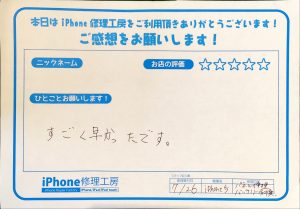 本日は iPhone 修理工房をご利用頂きありがとうございます!
ご感想をお願いします!
ニックネーム
お店の評価
ひとことお願いします!
すごく早かったです。
iPhone修理工房
7/26